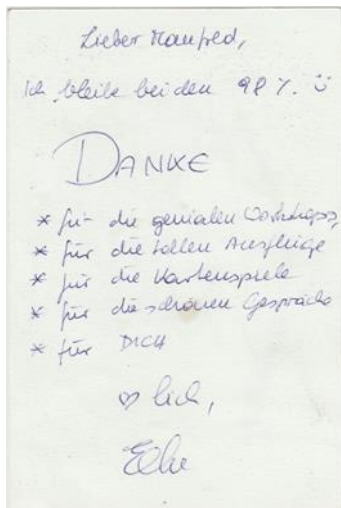 Lieber Manfred,
Ich bleibe bei den 98 %. ü
DANKE
* für die genialen Workshops,
* für die tollen Ausflüge
* für die Kartenspiele
* für die schönen Gespräche
* für DICH
♡lich,
Elke